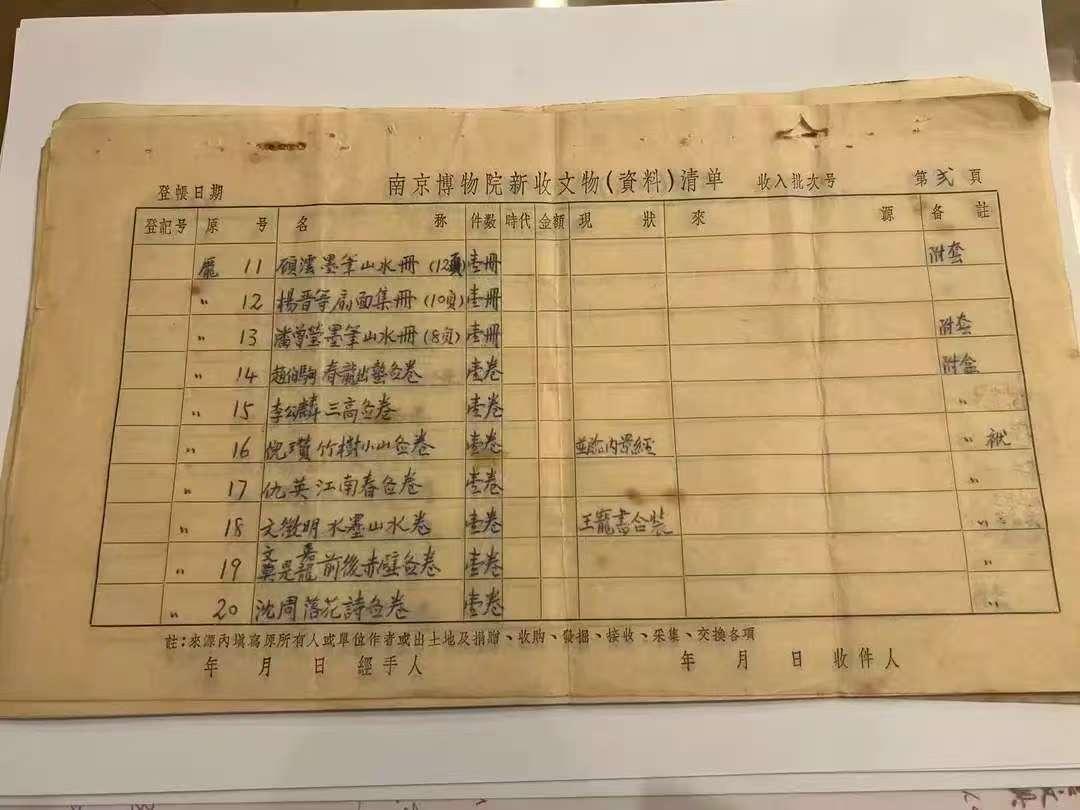 南京博物院新收文物(資料)清单
登帳日期 收入批次号 第贰頁
登記号 原号 名称 件数 時代 金額 現狀 來源 备註
龐 11 顧澐墨筆山水冊(12頁) 壹冊 附套
〃 12 楊晋等扇面集冊(10页) 壹冊
〃 13 潘曾瑩墨筆山水冊(8页) 壹冊 附套
〃 14 趙伯駒春龍出蟄啚卷 壹卷 附盒
〃 15 李公麟三高啚卷 壹卷 〃
〃 16 倪瓚竹樹小山啚卷 壹卷 內景經 〃 袱
〃 17 仇英江南春啚卷 壹卷 〃
〃 18 文徵明水墨山水卷 壹卷 王寵書合装 〃
〃 19 文嘉莫是龍前後赤壁啚卷 壹卷 〃
〃 20 沈周落花詩啚卷 壹卷 〃
註:來源內填寫原所有人或單位作者或出土地及捐贈、收购、發掘、接收、采集、交換各項
年 月 日 經手人 年 月 日 收件人